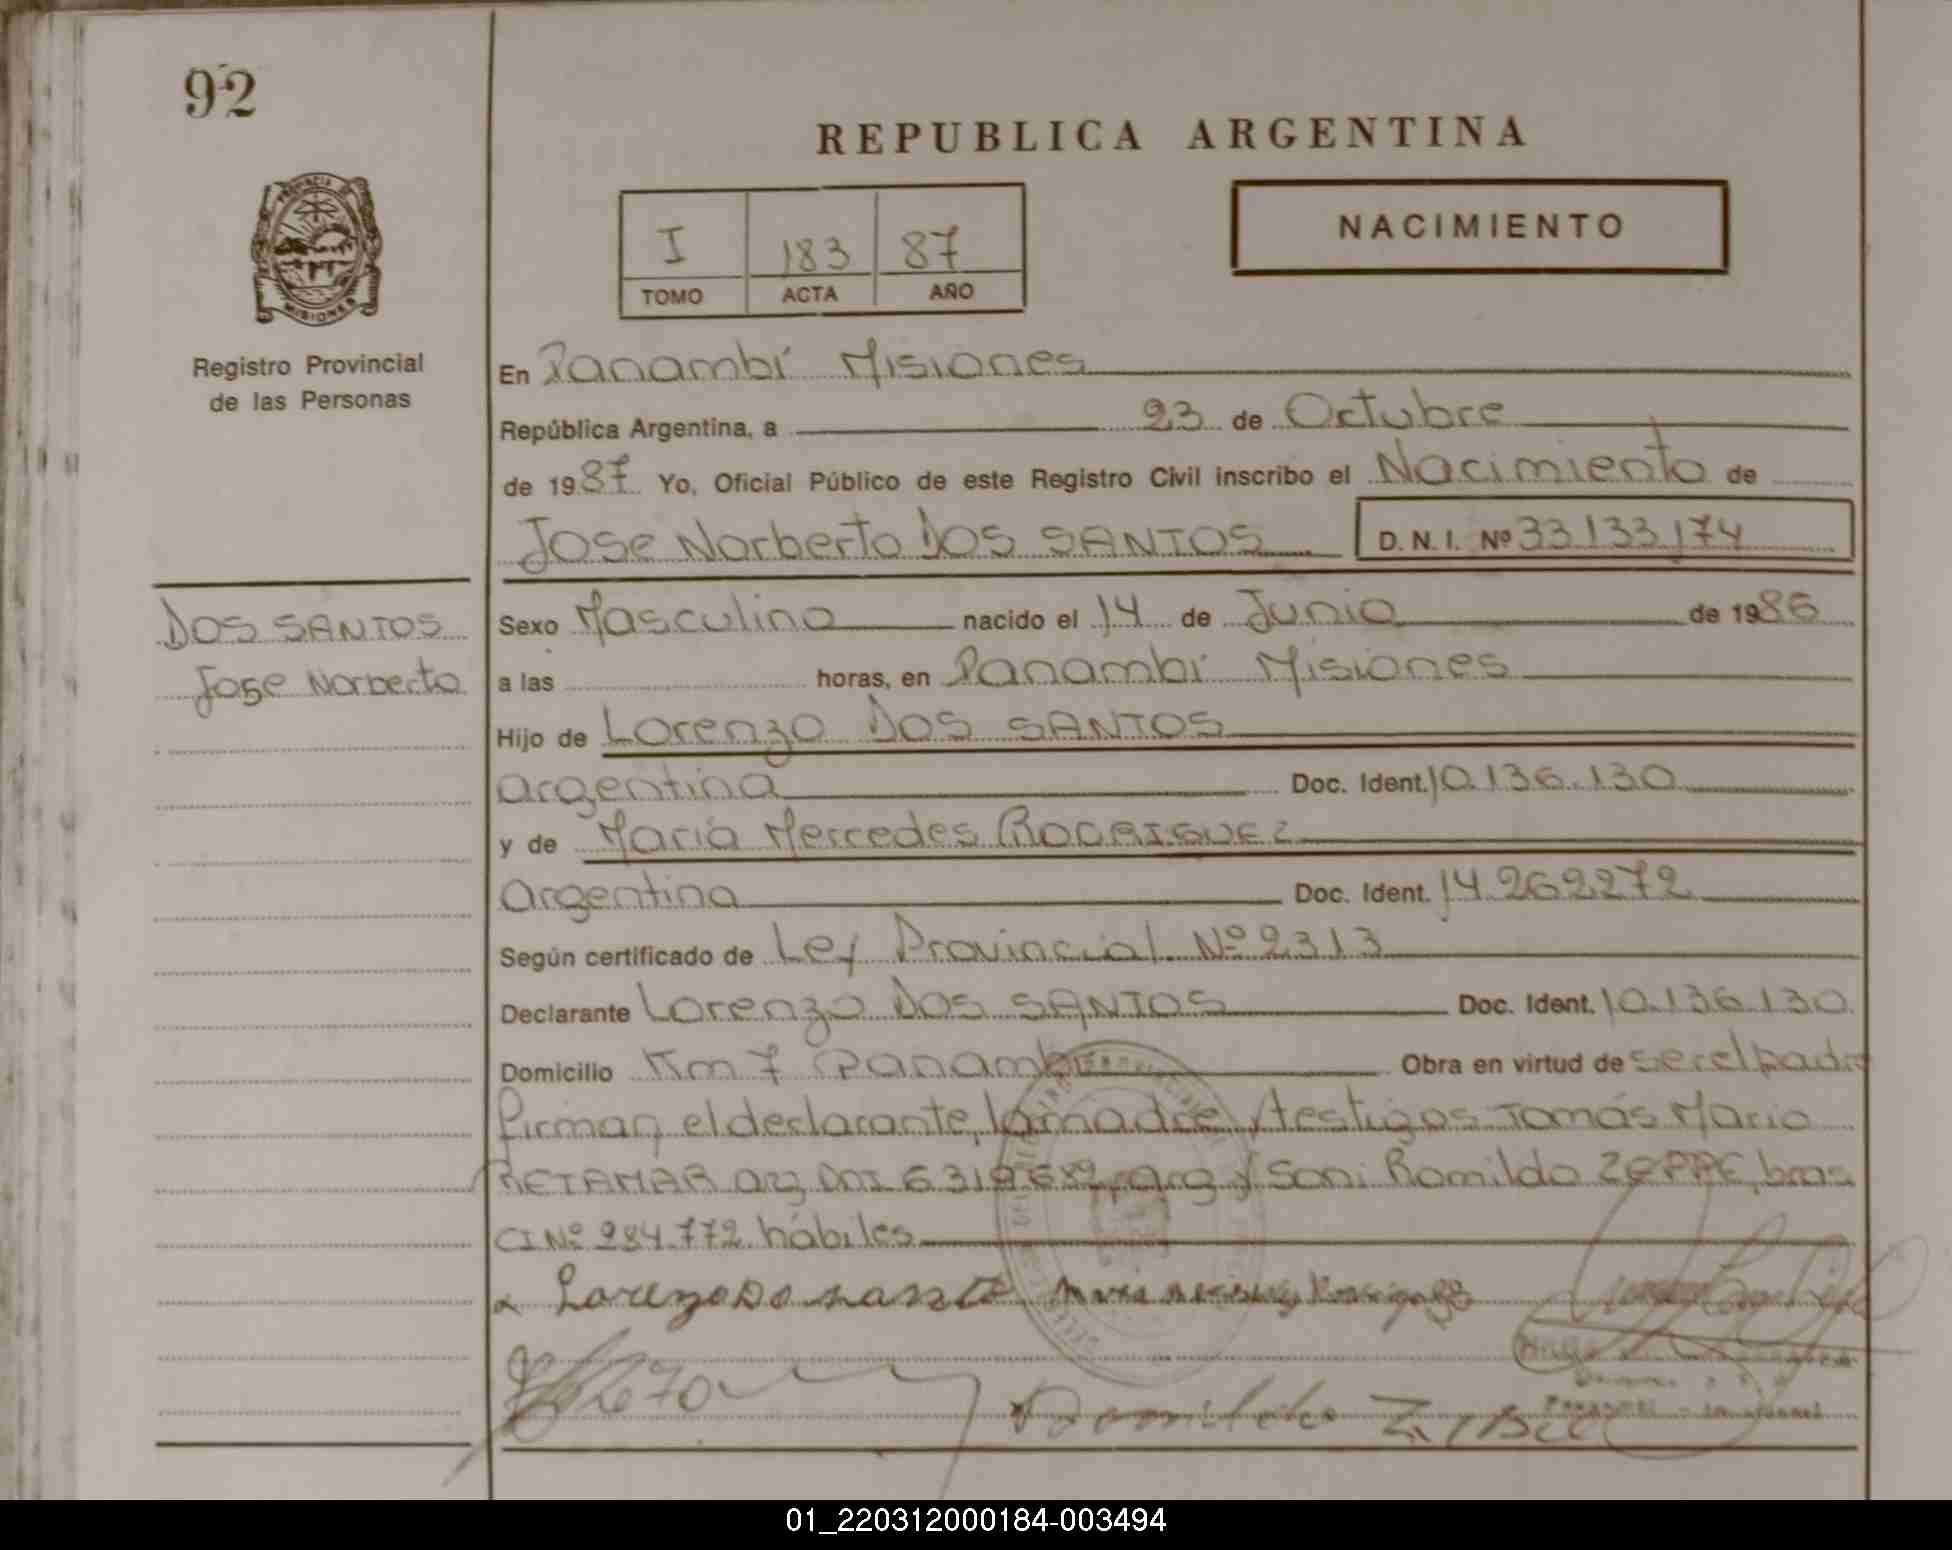 92
REPUBLICA ARGENTINA
NACIMIENTO
I 183 87
TOMO ACTA AÑO
PROVINCIA DE MISIONES
Registro Provincial
de las Personas
En Panambí Misiones
República Argentina, a 23 de Octubre
de 1987 Yo, Oficial Público de este Registro Civil inscribo el Nacimiento de
Jose Norberto DOS SANTOS D.N.I. Nº 33.133.174
DOS SANTOS
Jose Norberto
Sexo Masculino nacido el 14 de Junio de 1986
a las horas, en Panambí Misiones
Hijo de Lorenzo DOS SANTOS
argentina Doc. Ident. 10.136.130
y de María Mercedes RODRIGUEZ
Argentina Doc. Ident. 14.262272
Según certificado de Ley Provincial Nº 2313
Declarante Lorenzo DOS SANTOS Doc. Ident. 10.136.130
Domicilio Km 7 Panambí Obra en virtud de ser el padre
firman el declarante, la madre y testigos Tomás Mario
RETAMAR arg DNI 6.319.689, arg y Soni Romildo ZEPPE, bras
CI Nº 984.772 hábiles
Romildo
01_220312000184-003494